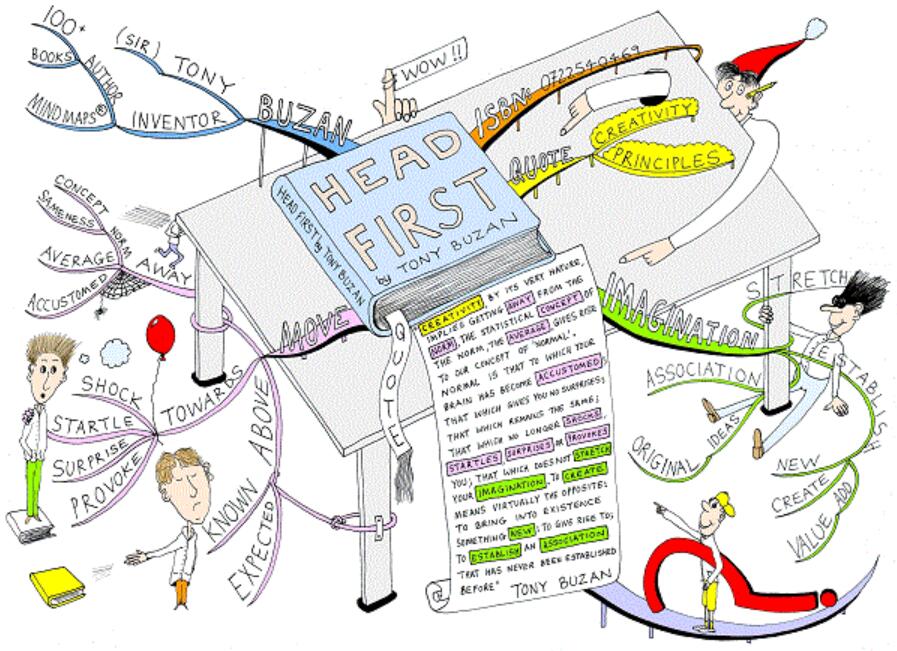 100+
BOOKS
AUTHOR
MIND MAPS®
(SIR) TONY
INVENTOR
BUZAN
WOW!!
ISBN: 0722540469
QUOTE
CREATIVITY
PRINCIPLES
HEAD
FIRST
by TONY BUZAN
HEAD FIRST! by TONY BUZAN
CONCEPT
SAMENESS
NORM
AVERAGE
ACCUSTOMED
AWAY
MOVE
TOWARDS
SHOCK
STARTLE
SURPRISE
PROVOKE
KNOWN ABOVE
EXPECTED
QUOTE
CREATIVITY BY ITS VERY NATURE,
IMPLIES GETTING AWAY FROM THE
NORM. THE STATISTICAL CONCEPT OF
THE NORM, THE AVERAGE, GIVES RISE
TO OUR CONCEPT OF 'NORMAL'.
NORMAL IS THAT TO WHICH YOUR
BRAIN HAS BECOME ACCUSTOMED;
THAT WHICH GIVES YOU NO SURPRISES;
THAT WHICH REMAINS THE SAME;
THAT WHICH NO LONGER SHOCKS,
STARTLES SURPRISES OR PROVOKES
YOU; THAT WHICH DOES NOT STRETCH
YOUR IMAGINATION. TO CREATE
MEANS VIRTUALLY THE OPPOSITE:
TO BRING INTO EXISTENCE
SOMETHING NEW; TO GIVE RISE TO;
TO ESTABLISH AN ASSOCIATION
"THAT HAS NEVER BEEN ESTABLISHED
BEFORE" TONY BUZAN
IMAGINATION
STRETCH
ASSOCIATION
ORIGINAL IDEAS
ESTABLISH
NEW
CREATE
VALUE ADD